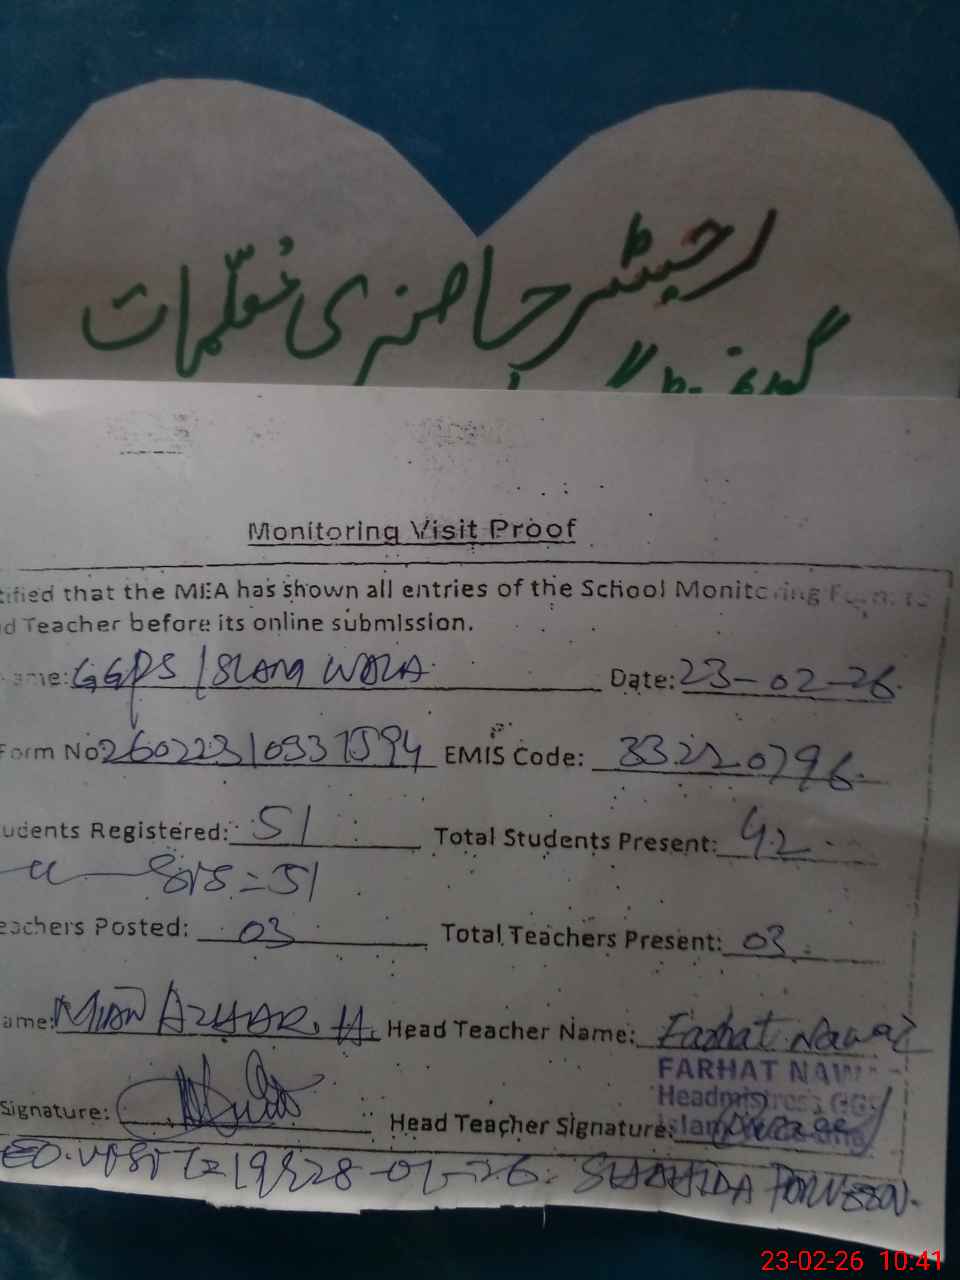 رجسٹر حاضری معلمات
گورنمنٹ
Monitoring Visit Proof
tified that the MEA has shown all entries of the School Monitoring Form to
d Teacher before its online submission.
ame: GGPS ISLAM WALA Date: 23-02-26
Form No 260223103371594 EMIS Code: 33220796
udents Registered: 51 Total Students Present: 42
SIS = 51
eachers Posted: 03 Total Teachers Present: 03
ame: MIAN AZHAR. H. Head Teacher Name: Farhat Nawaz
FARHAT NAW
Headmistress GG
Signature: Head Teacher Signature:
Islam
EO. VISIT 28-01-26. SHAHIDA PARVEEN.
23-02-26 10:41